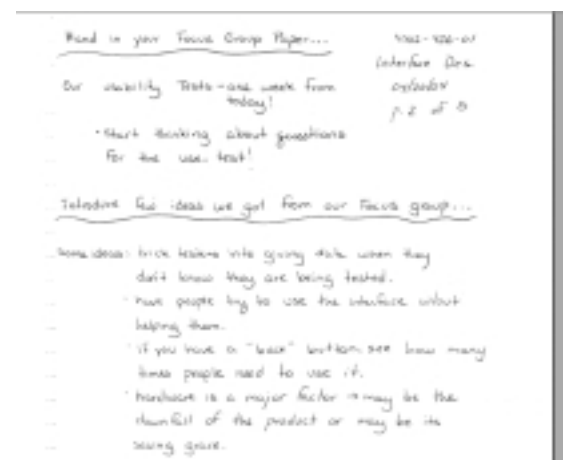 Hand in your Focus Group Paper...
Interface Des.
p. 2 of 3
Our usability Tests - one week from
today!
• Start thinking about questions
for the use. test!
Introduce few ideas we got from our Focus group...
Some ideas: trick testers into giving data when they
don't know they are being tested.
• have people try to use the interface w/out
helping them.
• if you have a "back" button see how many
times people need to use it.
• hardware is a major factor → may be the
downfall of the product or may be its
saving grace.